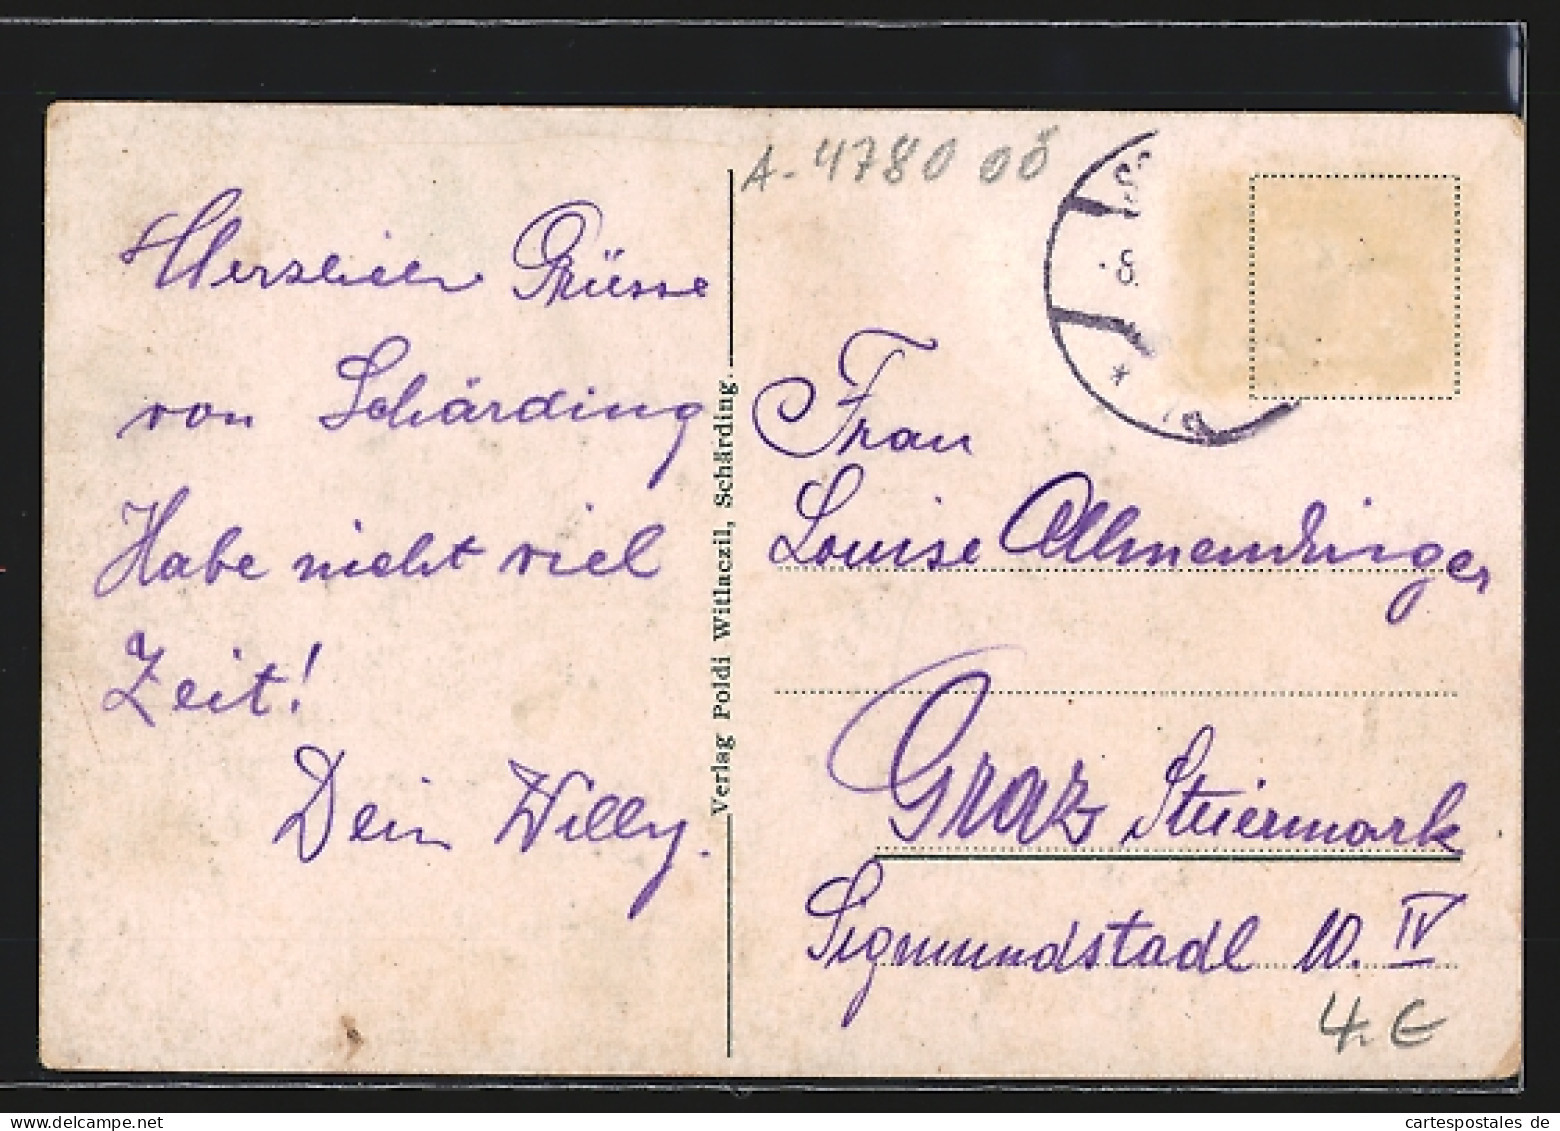 A-4780 OÖ
Herzlichen Grüsse
von Schärding
Habe nicht viel
Zeit!
Dein Willy.
Verlag Poldi Witlaczil, Schärding.
8.
Frau
Louise Allmendinger
Graz Steiermark
Sigmundstadl 10. IV
4.€
www.delcampe.net
cartespostales de